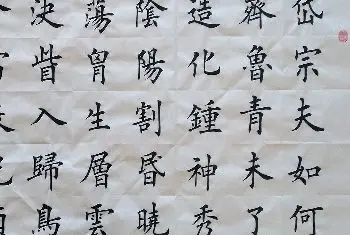 岱宗夫如何
齊魯青未了
造化鍾神秀
陰陽割昬曉
蕩胷生層雲
決眥入歸鳥